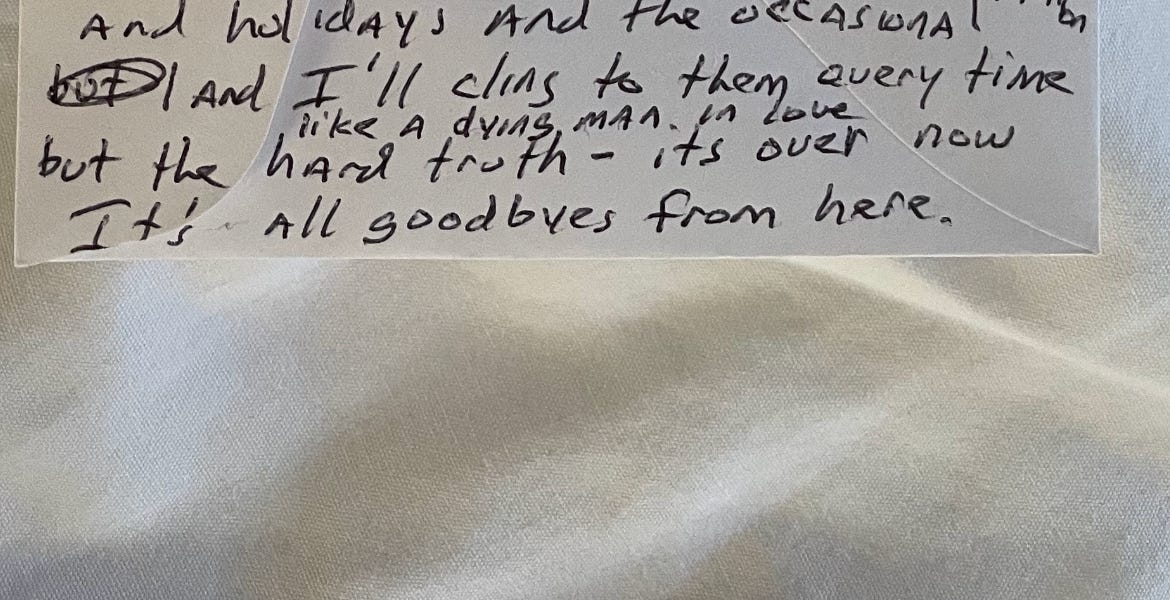 And holidAys And the occAsionAl
but And I'll cling to them every time
like A dying mAn in love
but the hArd truth - its over now
It's All goodbyes from here.